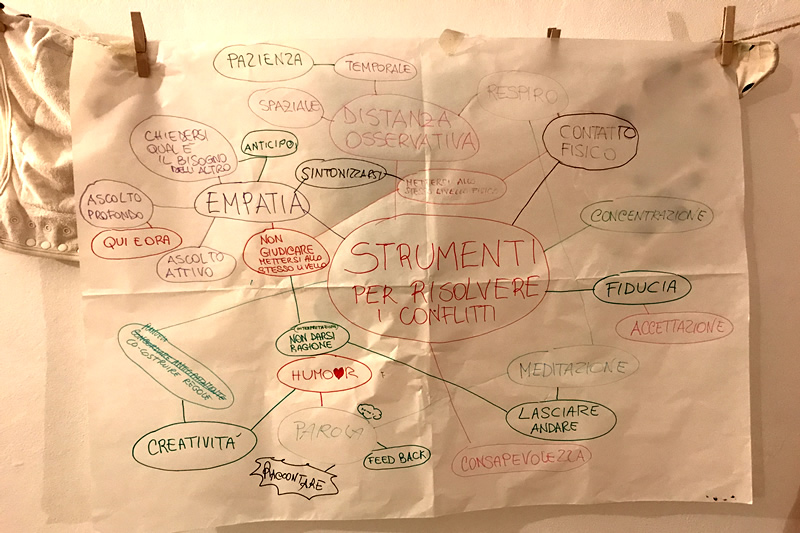 PAZIENZA
TEMPORALE
SPAZIALE
DISTANZA
OSSERVATIVA
RESPIRO
CONTATTO
FISICO
CHIEDERSI
QUAL È
IL BISOGNO
DELL'ALTRO
ANTICIPO
SINTONIZZARSI
METTERSI ALLO
STESSO LIVELLO FISICO
EMPATIA
ASCOLTO
PROFONDO
QUI E ORA
ASCOLTO
ATTIVO
NON
GIUDICARE
METTERSI ALLO
STESSO LIVELLO
STRUMENTI
PER RISOLVERE
I CONFLITTI
CONCENTRAZIONE
FIDUCIA
ACCETTAZIONE
NON DARSI
RAGIONE
CO-COSTRUIRE REGOLE
HUMOR
MEDITAZIONE
CREATIVITÀ
PAROLA
LASCIARE
ANDARE
FEED BACK
RACCONTARE
CONSAPEVOLEZZA